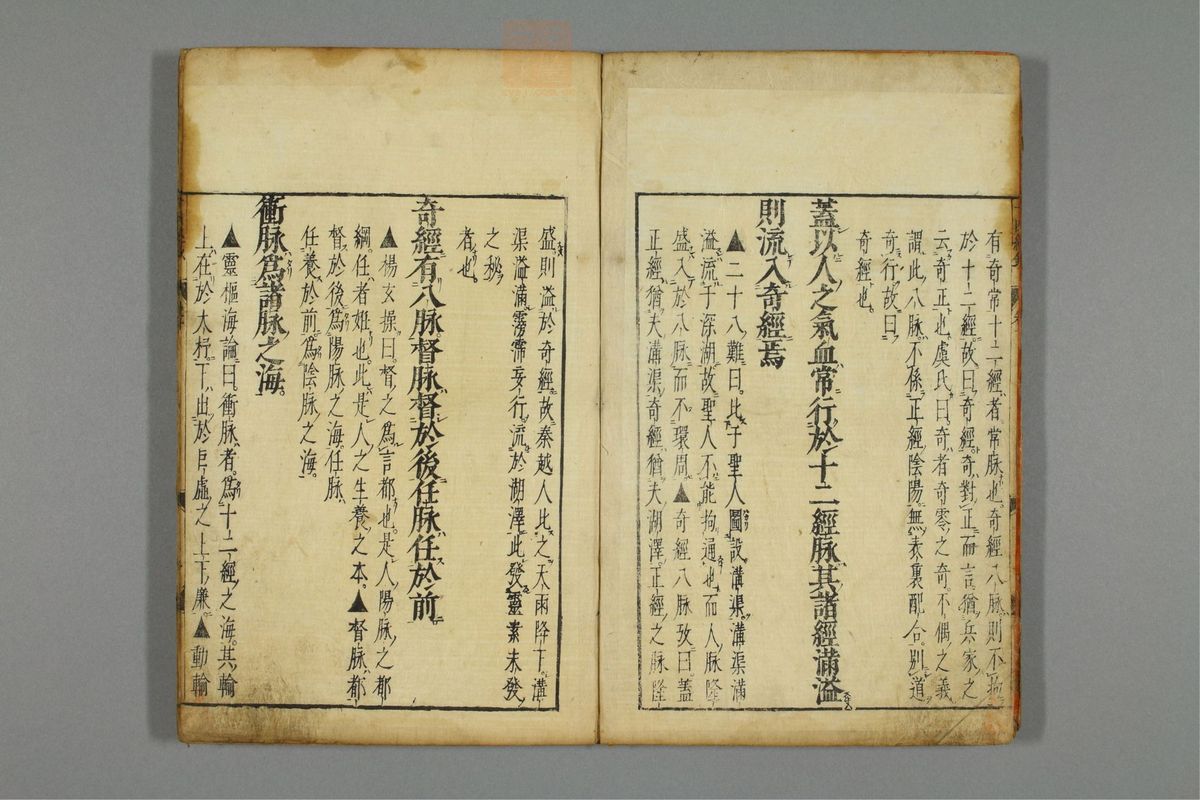 有奇常十二經者常脉也奇經八脉則不拘
於十二經故曰奇經奇對正而言猶兵家之
云奇正也虞氏曰奇者奇零之奇不偶之義
謂此八脉不係正經陰陽無表裏配合別道
奇行故曰
奇經也
蓋以人之氣血常行於十二經脉其諸經滿溢
則流入奇經焉
▲二十八難曰比于聖人圖設溝渠溝渠滿
溢流于深湖故聖人不能拘通也而人脉隆
盛入於八脉而不環周▲奇經八脉攷曰蓋
正經猶夫溝渠奇經猶夫湖澤正經之脉隆
盛則溢於奇經故秦越人比之天雨降下溝
渠溢滿霶霈妄行流於湖澤此發靈素未發
之秘
者也
奇經有八脉督脉督於後任脉任於前
▲楊玄操曰督之爲言都也是人陽脉之都
綱任者姙也此是人之生養之本▲督脉都
督於後爲陽脉之海任脉
任養於前爲陰脉之海
衝脉爲諸脉之海
▲靈樞海論曰衝脉者爲十二經之海其輸
上在於大杼下出於巨虛之上下廉▲動輸